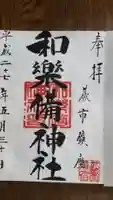 奉拝
蕨市鎮座
和樂備神社
平成二十七年五月三十日